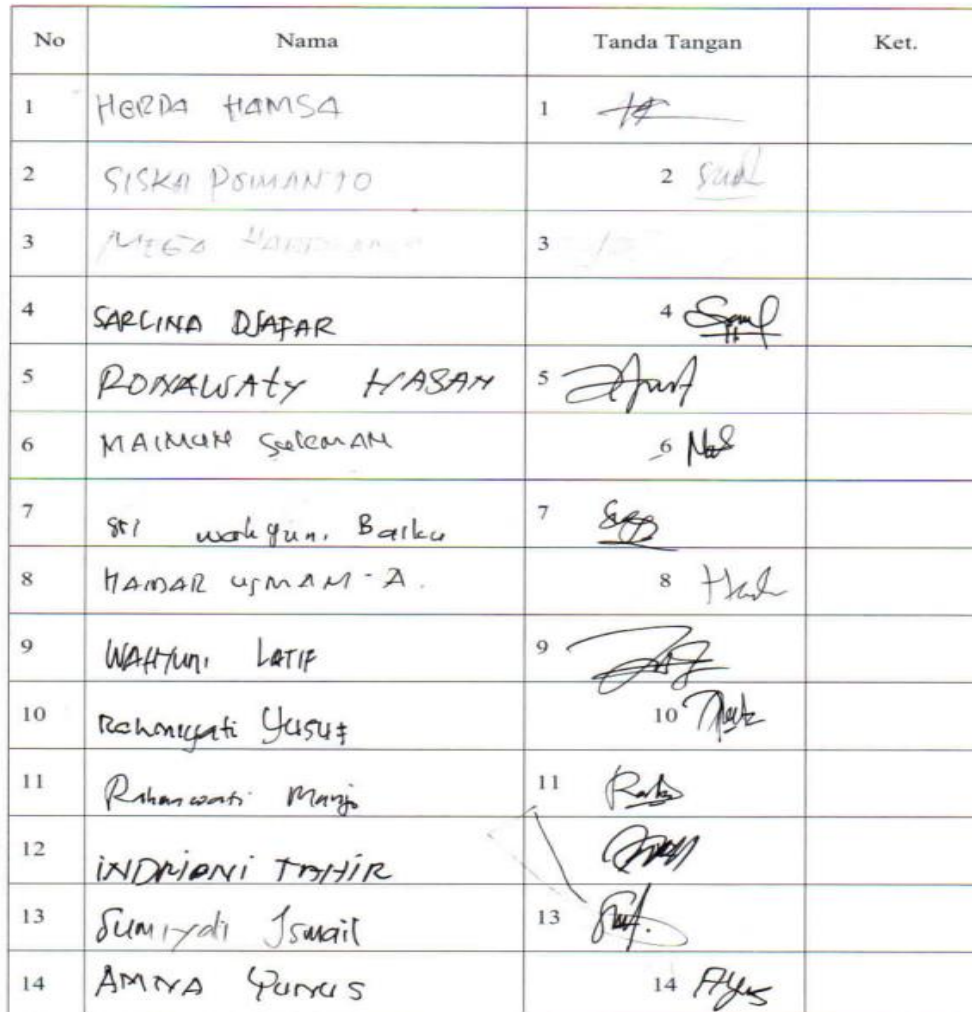 No Nama Tanda Tangan Ket.
1 HERDA HAMSA 1
2 SISKA POMANTO 2
3 MEGA 3
4 SARLINA DJAFAR 4
5 RONAWATY HASAN 5
6 MAIMUN SULEMAN 6
7 sri wahyuni Baiku 7
8 HAMDAR USMAN A. 8
9 WAHYUni LATIF 9
10 Rahmiyati Yusuf 10
11 Rahmawati Manjo 11
12 iNDRiANi TAHiR
13 Sumiyati Ismail 13
14 AMNA YUNUS 14